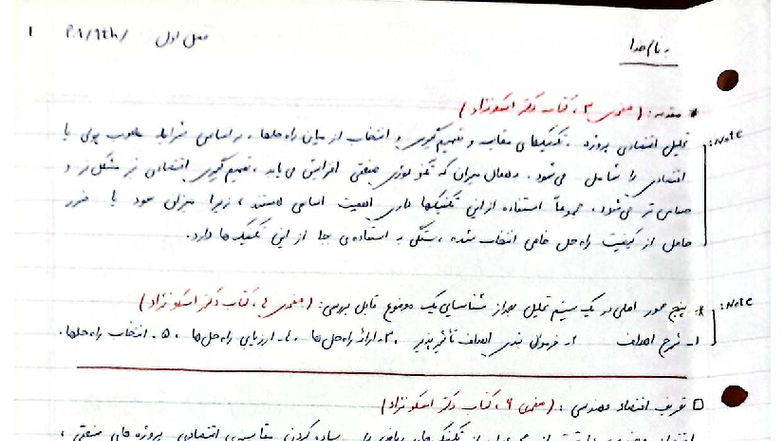 بنام خدا
فصل اول P.1/
1
* مقدمه: (صفحه‌ی 3، کتاب دکتر اسکونژاد)
Note:
تحلیل اقتصادی پروژه، تکنیکهای مقایسه و تصمیم گیری و انتخاب از میان راه حلها، براساس شرایط مطلوب پولی یا
اقتصادی را شامل می‌شود. به همان میزان که تکنولوژی صنعتی افزایش می‌یابد، تصمیم گیری اقتصادی نیز مشکل تر و
حساس تر می‌شود. عموماً استفاده از این تکنیکها دارای اهمیت اساسی هستند، زیرا میزان سود یا ضرر
حاصل از کیفیت راه حل خاص انتخاب شده، بستگی به استفاده‌ی بجا از این تکنیک ها دارد.
Note:
* پنج محور اصلی در یک سیستم تحلیل بعد از شناسایی یک موضوع قابل بررسی: (صفحه‌ی 4، کتاب دکتر اسکونژاد)
1- شرح اهداف 2- فرموله بندی اهداف تأثیرپذیر 3- ارائه راه حل ها، 4- ارزیابی راه حل ها، 5- انتخاب راه حلها.
□ تعریف اقتصاد مهندسی: (صفحه‌ی 6، کتاب دکتر اسکونژاد)
اقتصاد مهندسی از تکنیک های ریاضی برای ساده کردن مقایسه‌ی اقتصادی پروژه های صنعتی،